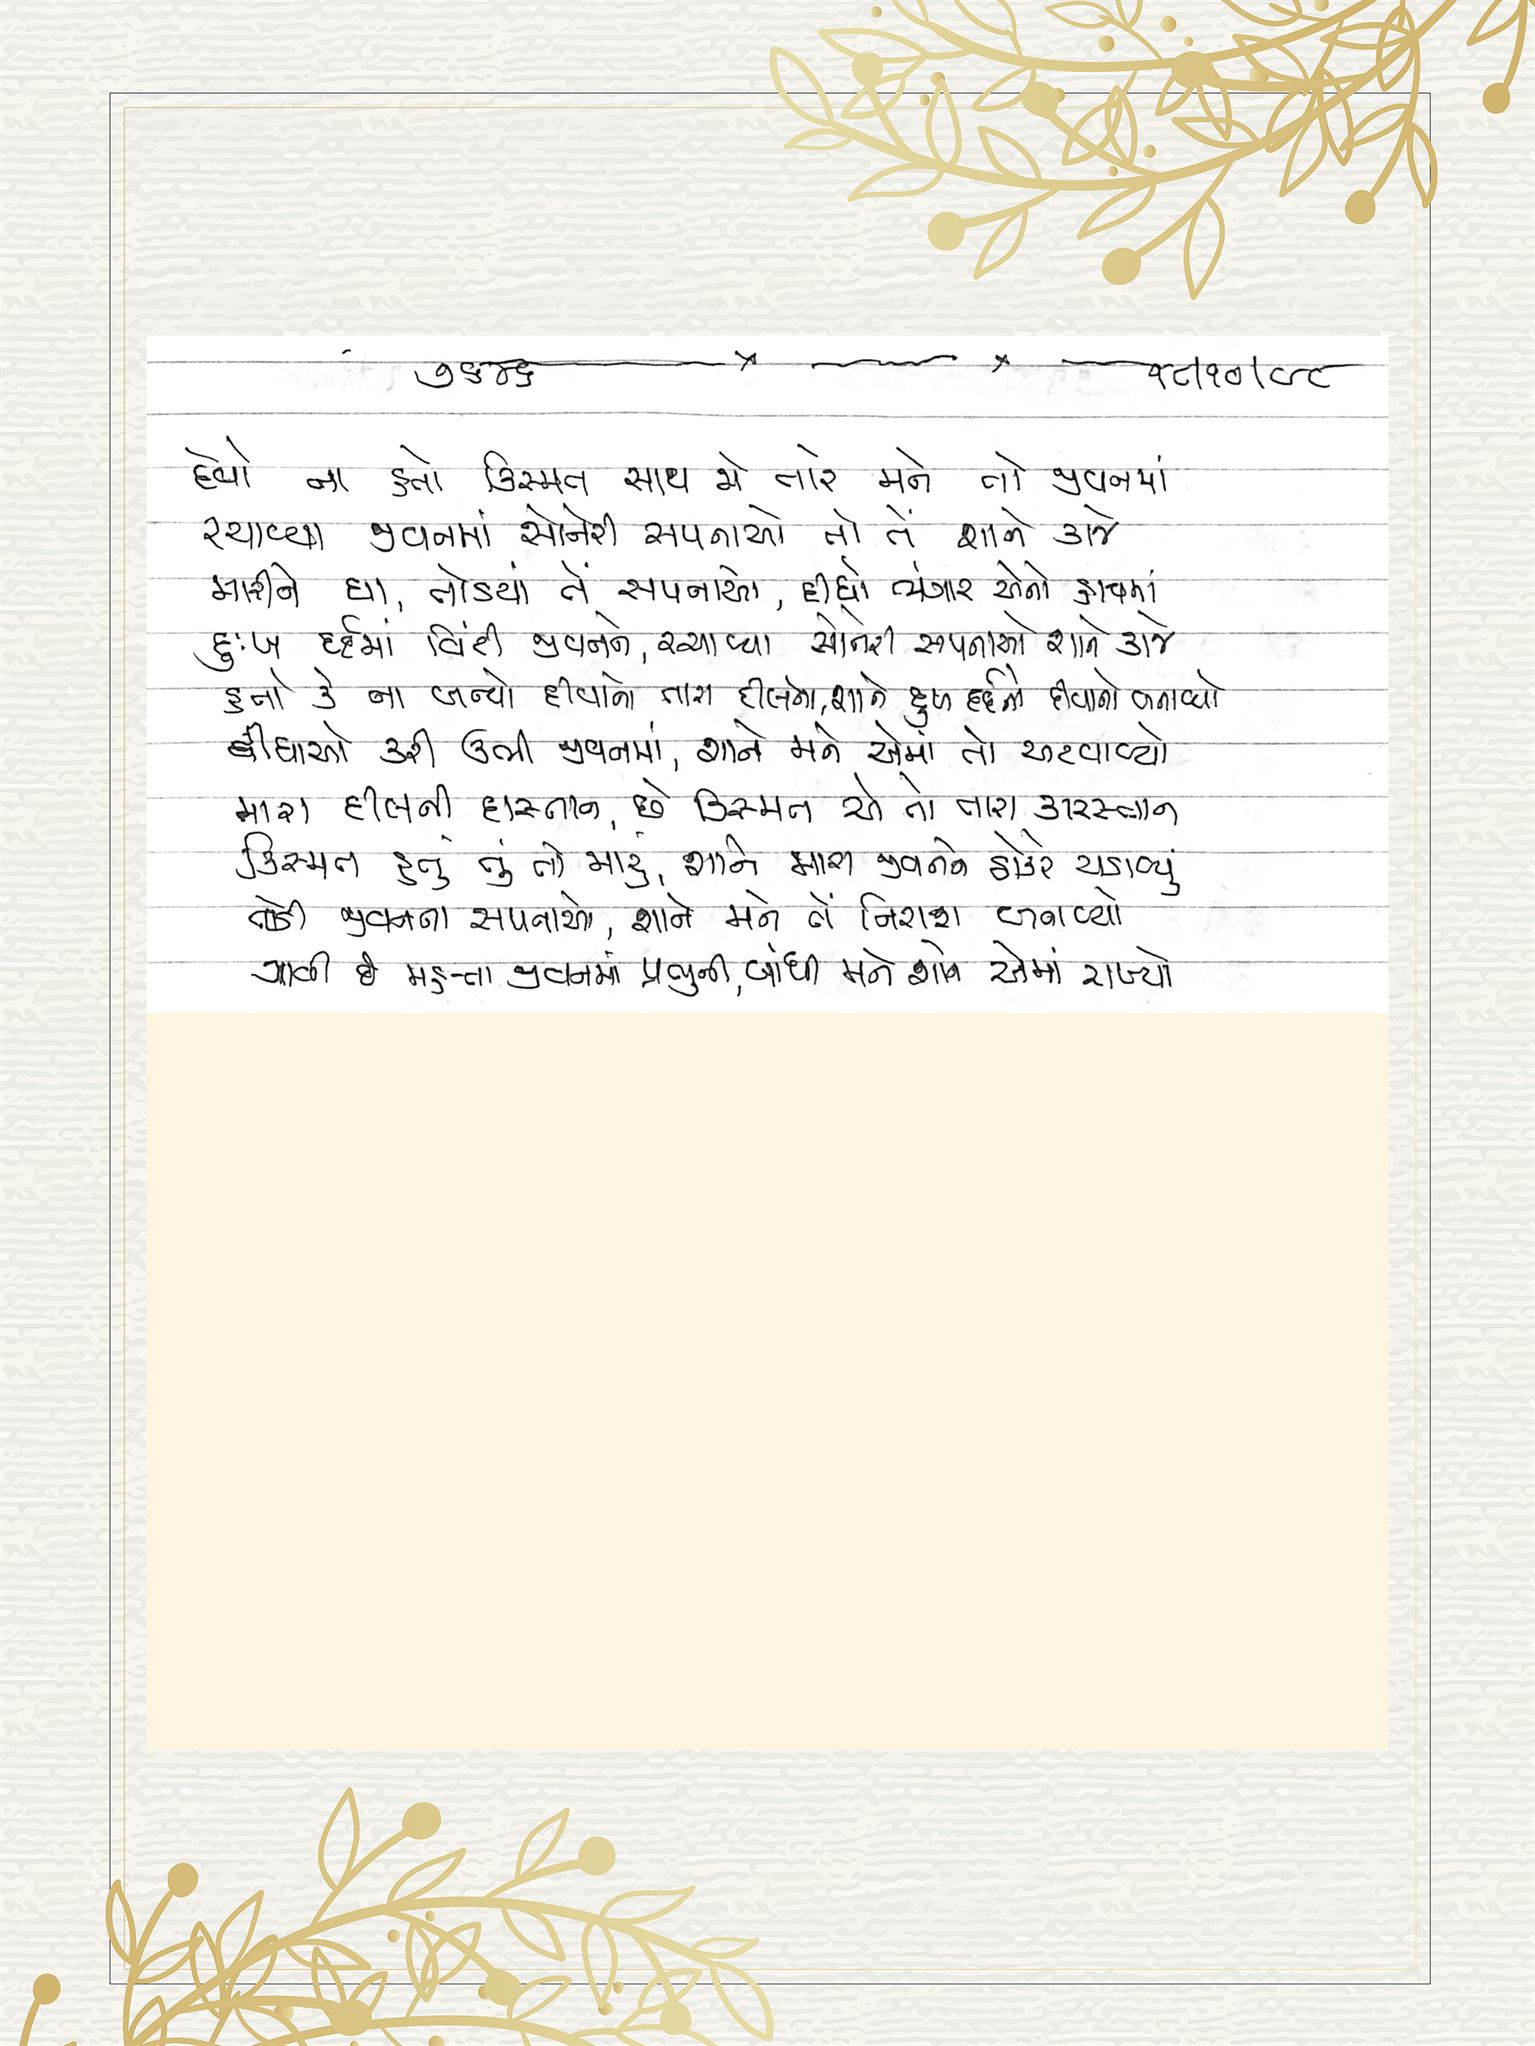 ૭૬૪૬ ૧૮/૧૦/૯૮
દેવો ના હતો કિસ્મત સાથ મે તારે મને તો જીવનમાં
રચાવ્યા જીવનમાં સોનેરી સપનાઓ તો તેં શાને આજે
મારીને ઘા, તોડયાં તેં સપનાઓ, દીધો અંગાર એનો હાથમાં
દુઃખ દર્દમાં વિંટી જીવનને, રચાવ્યા સોનેરી સપનાઓ શાને આજે
હતો કે ના બન્યો દીવાનો તારા દીલનો, શાને દુઃખ દર્દનો દીવાનો બનાવ્યો
બીધાઓ કરી ઉભી જીવનમાં, શાને મને એમાં તો અટવાવ્યો
મારા દીલની દાસ્તાન, છે કિસ્મત એ તો તારા કારસ્તાન
કિસ્મત હતું તું તો મારું, શાને મારા જીવનને ઠોકરે ચડાવ્યું
તોડી જીવનના સપનાઓ, શાને મને તેં નિરાશ બનાવ્યો
ગાવી છે મહત્તા જીવનમાં પ્રભુની, બાંધી મને શાને એમાં રાખ્યો